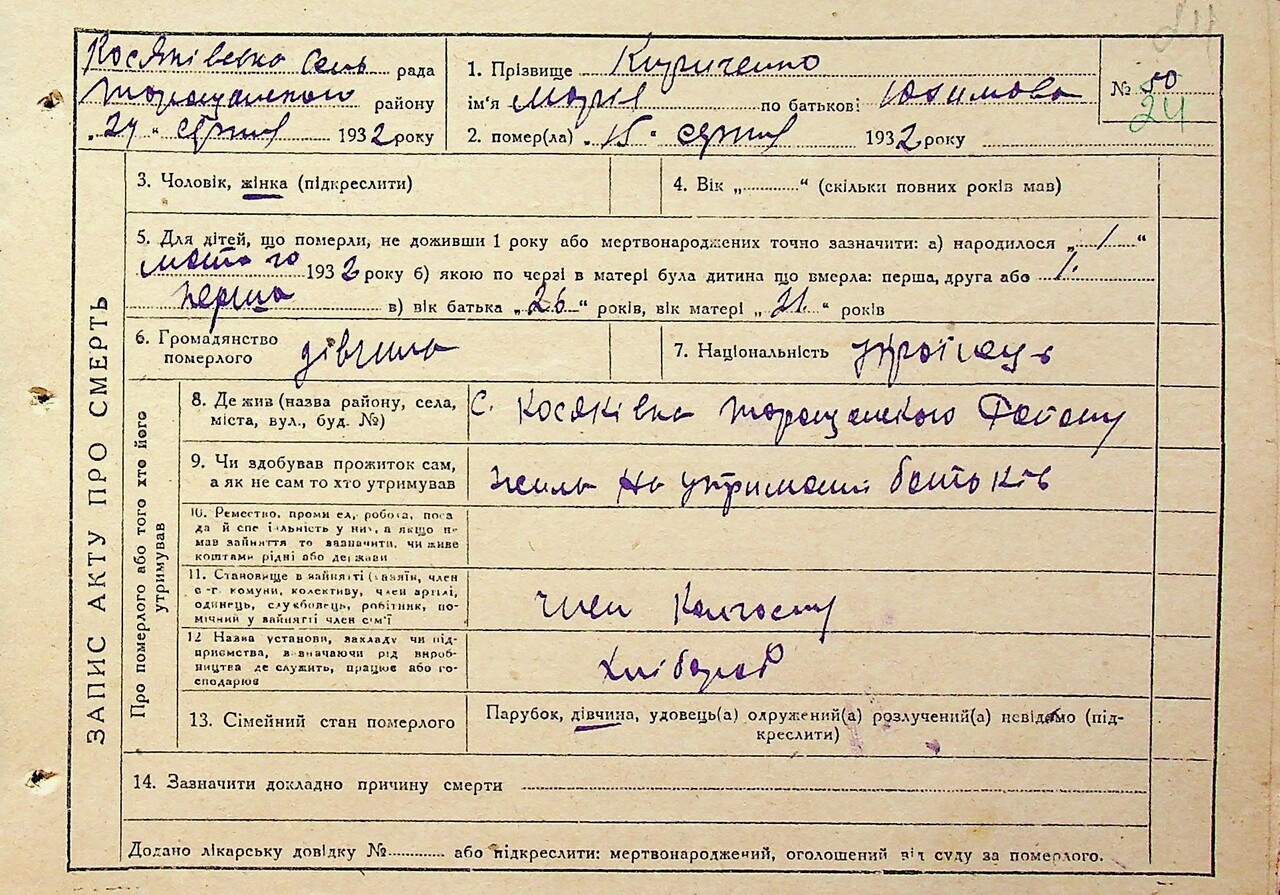 24
Косяківська Сель рада
Таращанського району
„24" серпня 1932 року
1. Прізвище Кириченко
ім'я Марія по батькові Юхимова
2. помер(ла) „15" серпня 1932 року
№ 50
24
ЗАПИС АКТУ ПРО СМЕРТЬ
3. Чоловік, жінка (підкреслити)
4. Вік „..........“ (скільки повних років мав)
5. Для дітей, що померли, не доживши 1 року або мертвонароджених точно зазначити: а) народилося „1“
лютого 1932 року б) якою по черзі в матері була дитина що вмерла: перша, друга або 1.
перша в) вік батька „26“ років, вік матері „21“ років
6. Громадянство
померлого дівчина
7. Національність українець
Про померлого або того хто його
утримував
8. Де жив (назва району, села,
міста, вул., буд. №)
с. Косяківка Таращанського Району
9. Чи здобував прожиток сам,
а як не сам то хто утримував
на утриманні батьків
10. Ремество, промисел, робота, поса
да й спеціяльність у них, а якщо не
мав зайняття то зазначити, чи живе
коштами рідні або держави
11. Становище в зайнятті (хазяїн, член
с-г. комуни, колективу, член артілі,
одинець, службовець, робітник, по-
мічний у зайнятті член сім'ї
член Колгоспу
12 Назва установи, закладу чи під-
приємства, визначаючи рід вироб-
ництва де служить, працює або го-
сподарює
Хлібороб
13. Сімейний стан померлого
Парубок, дівчина, удовець(а) одружений(а) розлучений(а) невідомо (під-
креслити)
14. Зазначити докладно причину смерти
Додано лікарську довідку №.......... або підкреслити: мертвонароджений, оголошений від суду за померлого.